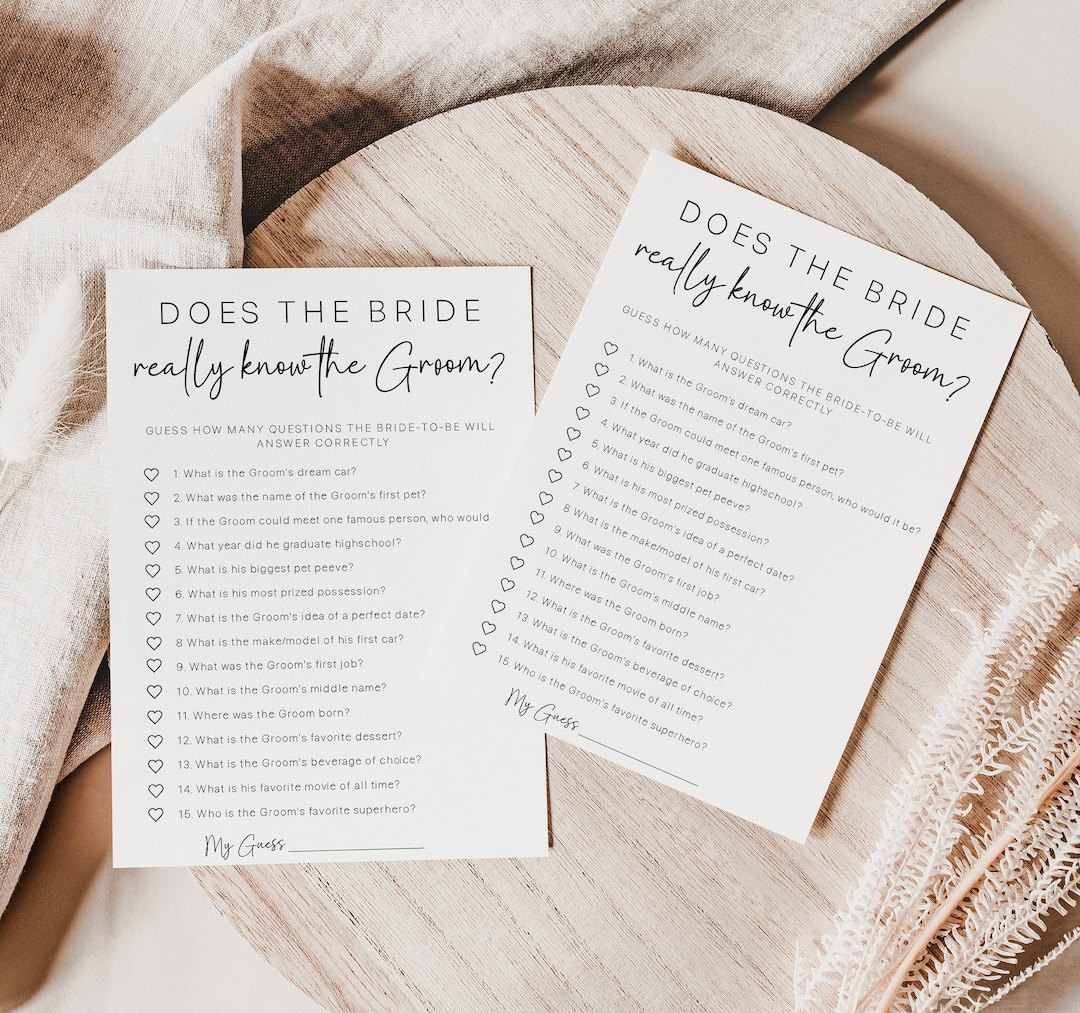 DOES THE BRIDE
really know the Groom?
GUESS HOW MANY QUESTIONS THE BRIDE-TO-BE WILL
ANSWER CORRECTLY
1. What is the Groom's dream car?
2. What was the name of the Groom's first pet?
3. If the Groom could meet one famous person, who would
4. What year did he graduate highschool?
5. What is his biggest pet peeve?
6. What is his most prized possession?
7. What is the Groom's idea of a perfect date?
8 What is the make/model of his first car?
9. What was the Groom's first job?
10. What is the Groom's middle name?
11. Where was the Groom born?
12. What is the Groom's favorite dessert?
13. What is the Groom's beverage of choice?
14. What is his favorite movie of all time?
15. Who is the Groom's favorite superhero?
My Guess
DOES THE BRIDE
really know the Groom?
GUESS HOW MANY QUESTIONS THE BRIDE-TO-BE WILL
ANSWER CORRECTLY
1. What is the Groom's dream car?
2. What was the name of the Groom's first pet?
3. If the Groom could meet one famous person, who would it be?
4. What year did he graduate highschool?
5. What is his biggest pet peeve?
6. What is his most prized possession?
7. What is the Groom's idea of a perfect date?
8 What is the make/model of his first car?
9. What was the Groom's first job?
10. What is the Groom's middle name?
11. Where was the Groom born?
12. What is the Groom's favorite dessert?
13. What is the Groom's beverage of choice?
14. What is his favorite movie of all time?
15. Who is the Groom's favorite superhero?
My Guess